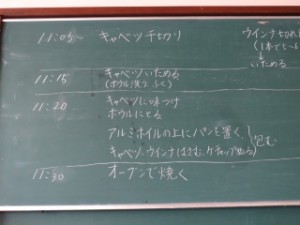 11:05 キャベツ千切り
ウインナ切れ
いためる
11:15 キャベツいためる
(ボウル洗う ふく)
11:20 キャベツに味つけ
ボウルにとる
アルミホイルの上にパンを置く、
キャベツ、ウインナはさむ、ケチャップぬる
包む
11:30 オーブンで焼く